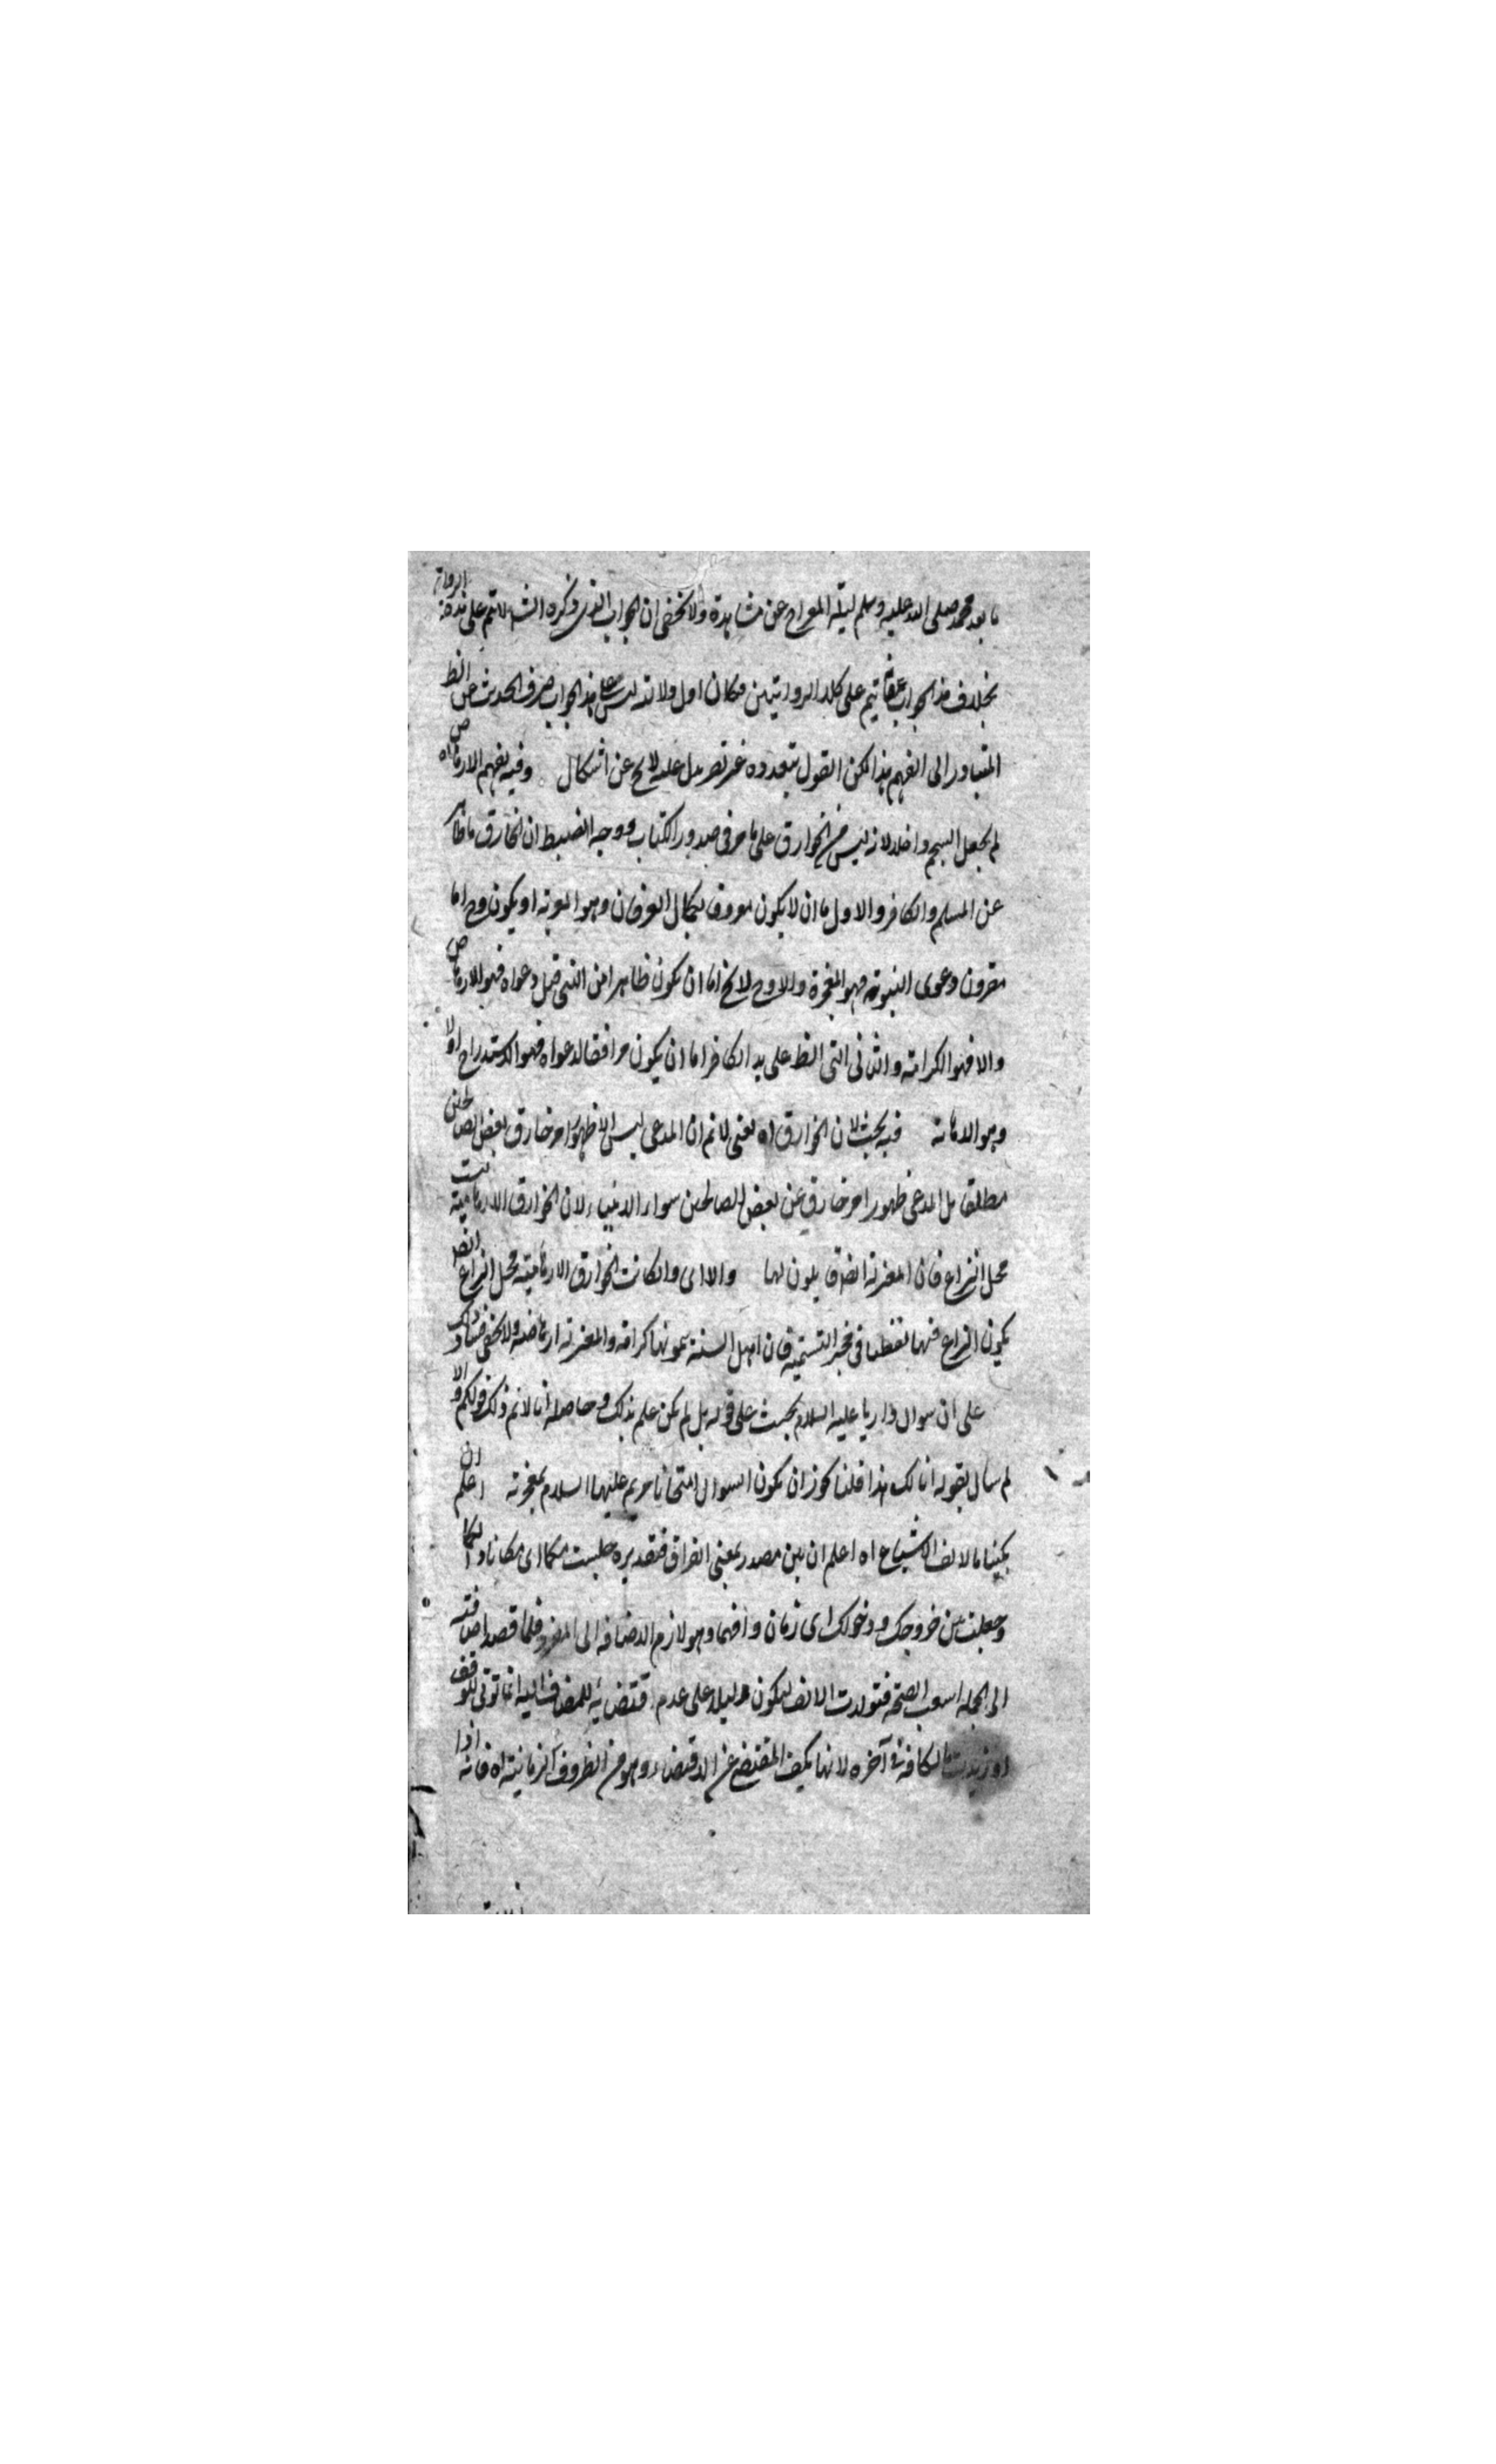 ما بعد محمد صلى الله عليه وسلم ليلة المعراج عن مشاهدة ولا يخفى ان الجواب الذى ذكره الش لا يتم على هذه الرواية
بخلاف هذا الجواب فانه يتم على كلا الروايتين فكان اولى ولانه ليس على هذا الجواب صرف الحديث عن الظ
المتبادر الى الفهم هذا لكن القول بتعدده غير نص يدل عليه لا يخ عن اشكال وفيه يفهم الارهاص اه
لم يجعل السحر داخلا لانه ليس من الخوارق على ما مر فى صدور الكتاب ووجه الضبط ان الخارق ما ظهر
عن المسلم والكافر والاول ما ان لا يكون معروفا بكمال العرفان وهو المعونة او يكون وح اما
مقرون دعوى النبوة فهو المعجزة والا وح لا يخ اما ان يكون ظاهرا من النبى قبل دعواه فهو الارهاص
والا فهو الكرامة والثانى التى الظ على يد الكافر اما ان يكون موافقا لدعواه فهو الاستدراج اولا
وهو الاهانة فيه بحث لان الخوارق اه يعنى لا نم ان المدعى ليس الا ظهور امر خارق لبعض الصالحين
مطلقا بل المدعى ظهور امر خارق عن بعض الصالحين سوى الانبياء لان الخوارق الارهاصية ليست
محل النزاع فان المعتزلة ايضا قايلون لها والا اى وان كانت الخوارق الارهاصية محل النزاع ايضا
يكون النزاع فيها لفظيا فى مجرد التسمية فان اهل السنة يسمونها كرامة والمعتزلة ارهاصة ولا يخفى فساد ذلك
على ان سوال ذاريا عليه السلام بحث على قوله بل لم يكن علم بذلك وحاصله انا لا نم ذلك قولكم والا
لم سأل بقوله انا لك هذا قلنا يجوز ان يكون السوال امتحانا مريم عليها السلام بمعجزته اعلم ان
بينا ما لالف الاشباع اه اعلم ان بين مصدر بمعنى الفراق فتقديره جلست بينكما اى مكانا فراقكما
وجعلت بين خروجك ودخولك اى زمان فراقهما وهو لازم الاضافة الى المفرد فلما قصد اضافته
الى الجملة اشبعت الفتحة فتولدت الالف ليكون دليلا على عدم اقتضائه للمضاف اليه انما تونى للوقف
او زيدت ما الكافة فى آخره لانها يكف المقتضى عن الاقتضاء وهو من الظروف الزمانية اه فانه اذا